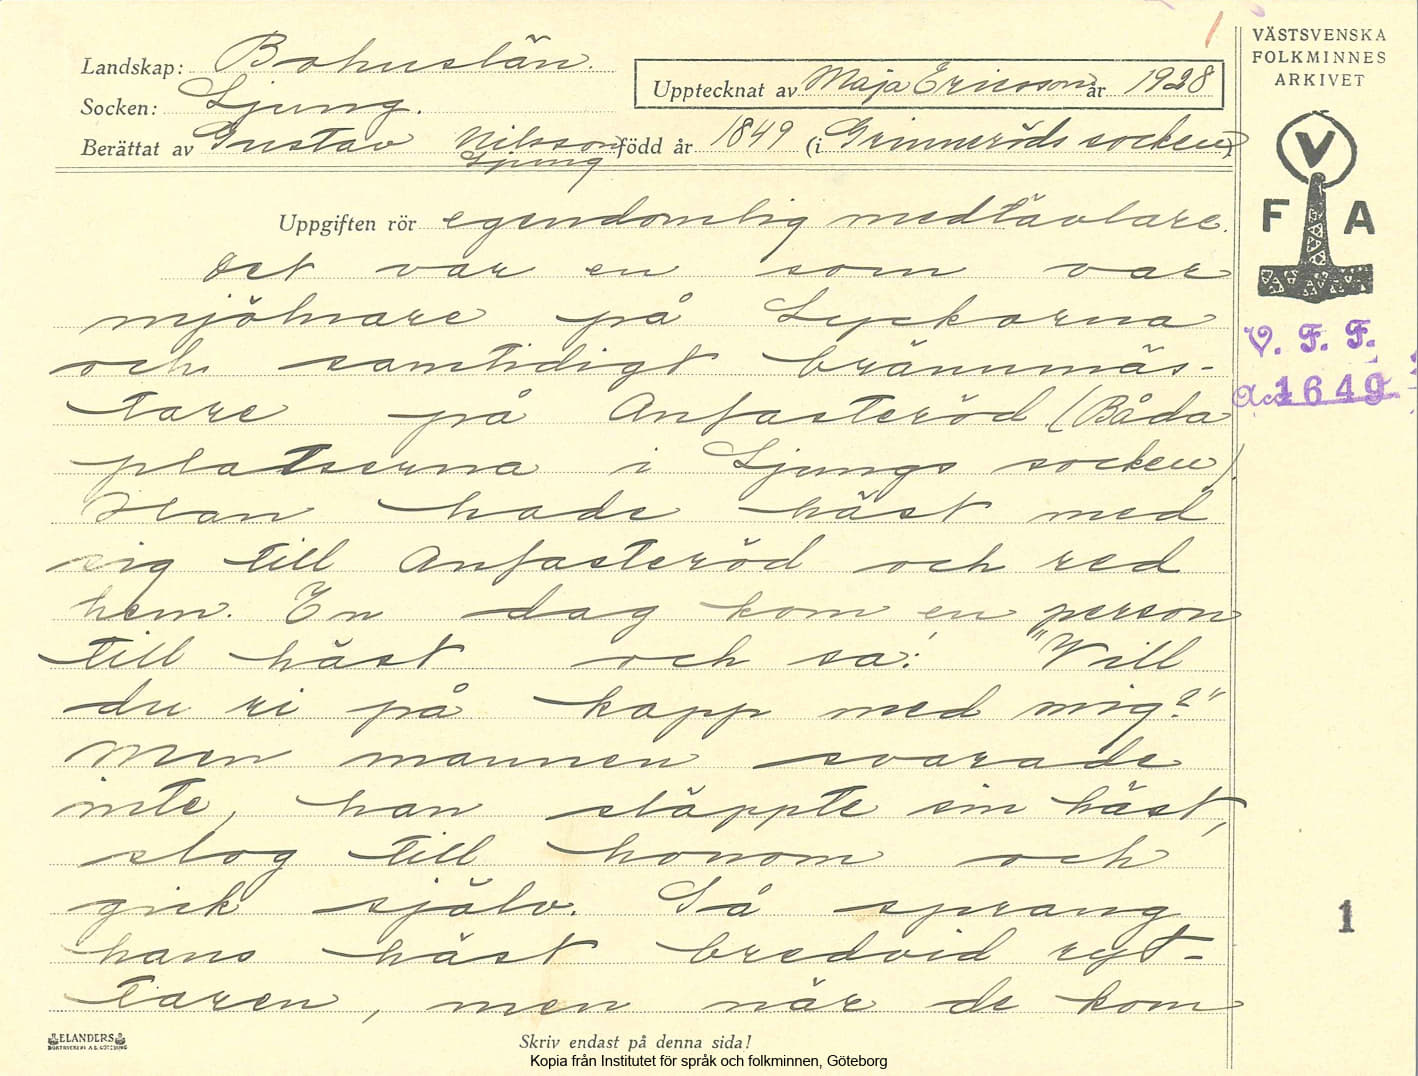 1
Landskap: Bohuslän.
Socken: Ljung.
Berättat av Gustav Nilsson född år 1849 (i Grinneröds socken)
Ljung
Upptecknat av Maja Ericsson år 1928
Uppgiften rör egendomlig medtävlare.
Det var en som var
mjölnare på Lyckorna
och samtidigt brännmäs-
tare på Anfasteröd. (Båda
platserna i Ljungs socken).
Han hade häst med
sig till Anfasteröd och red
hem. En dag kom en person
till häst och sa: "Vill
du ri på kapp med mig?"
Men mannen svarade
inte, han släppte sin häst,
slog till honom och
gick själv. Så sprang
hans häst bredvid ryt-
taren, men när de kom
ELANDERS
BOKTRYCKERI A.B. GÖTEBORG
Skriv endast på denna sida!
Kopia från Institutet för språk och folkminnen, Göteborg
VÄSTSVENSKA
FOLKMINNES
ARKIVET
V
F A
V. F. F.
Acc 1649
1